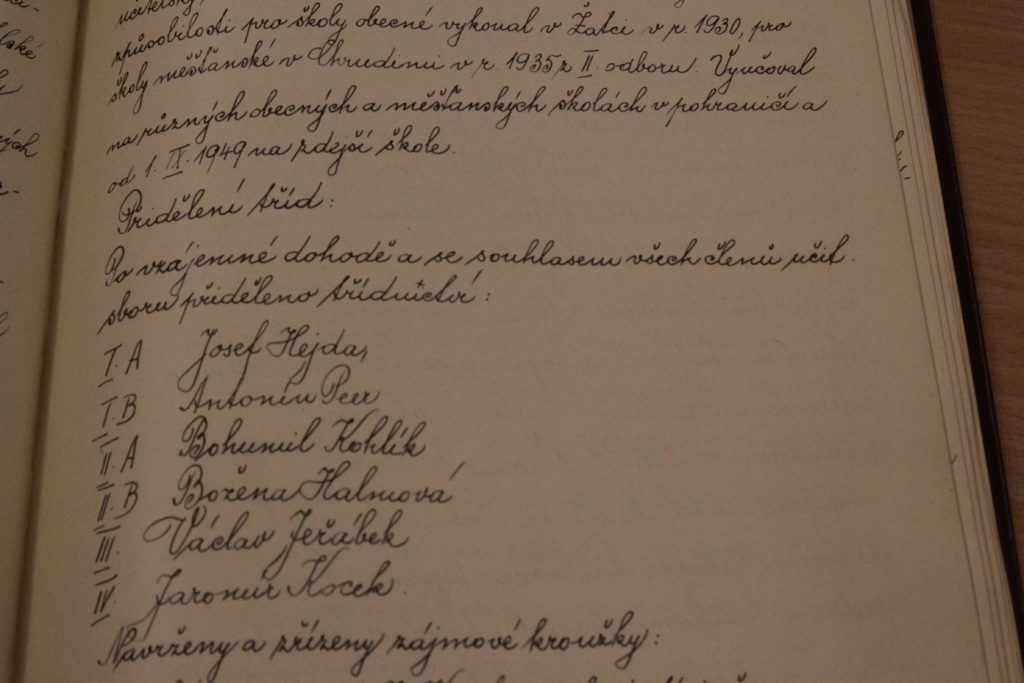 učitelský,
způsobilosti pro školy obecné vykonal v Žatci v r. 1930, pro
školy měšťanské v Chrudimi v r. 1935 z II. odboru. Vyučoval
na různých obecných a měšťanských školách v pohraničí a
od 1. IX. 1949 na zdejší škole.
Přidělení tříd:
Po vzájemné dohodě a se souhlasem všech členů učit.
sboru přiděleno třídnictví:
I. A Josef Hejda,
I. B Antonín Peer
II. A Bohumil Kohlík
II. B Božena Halmová
III. Václav Jeřábek
IV. Jaromír Kocek.
Navrženy a zřízeny zájmové kroužky: